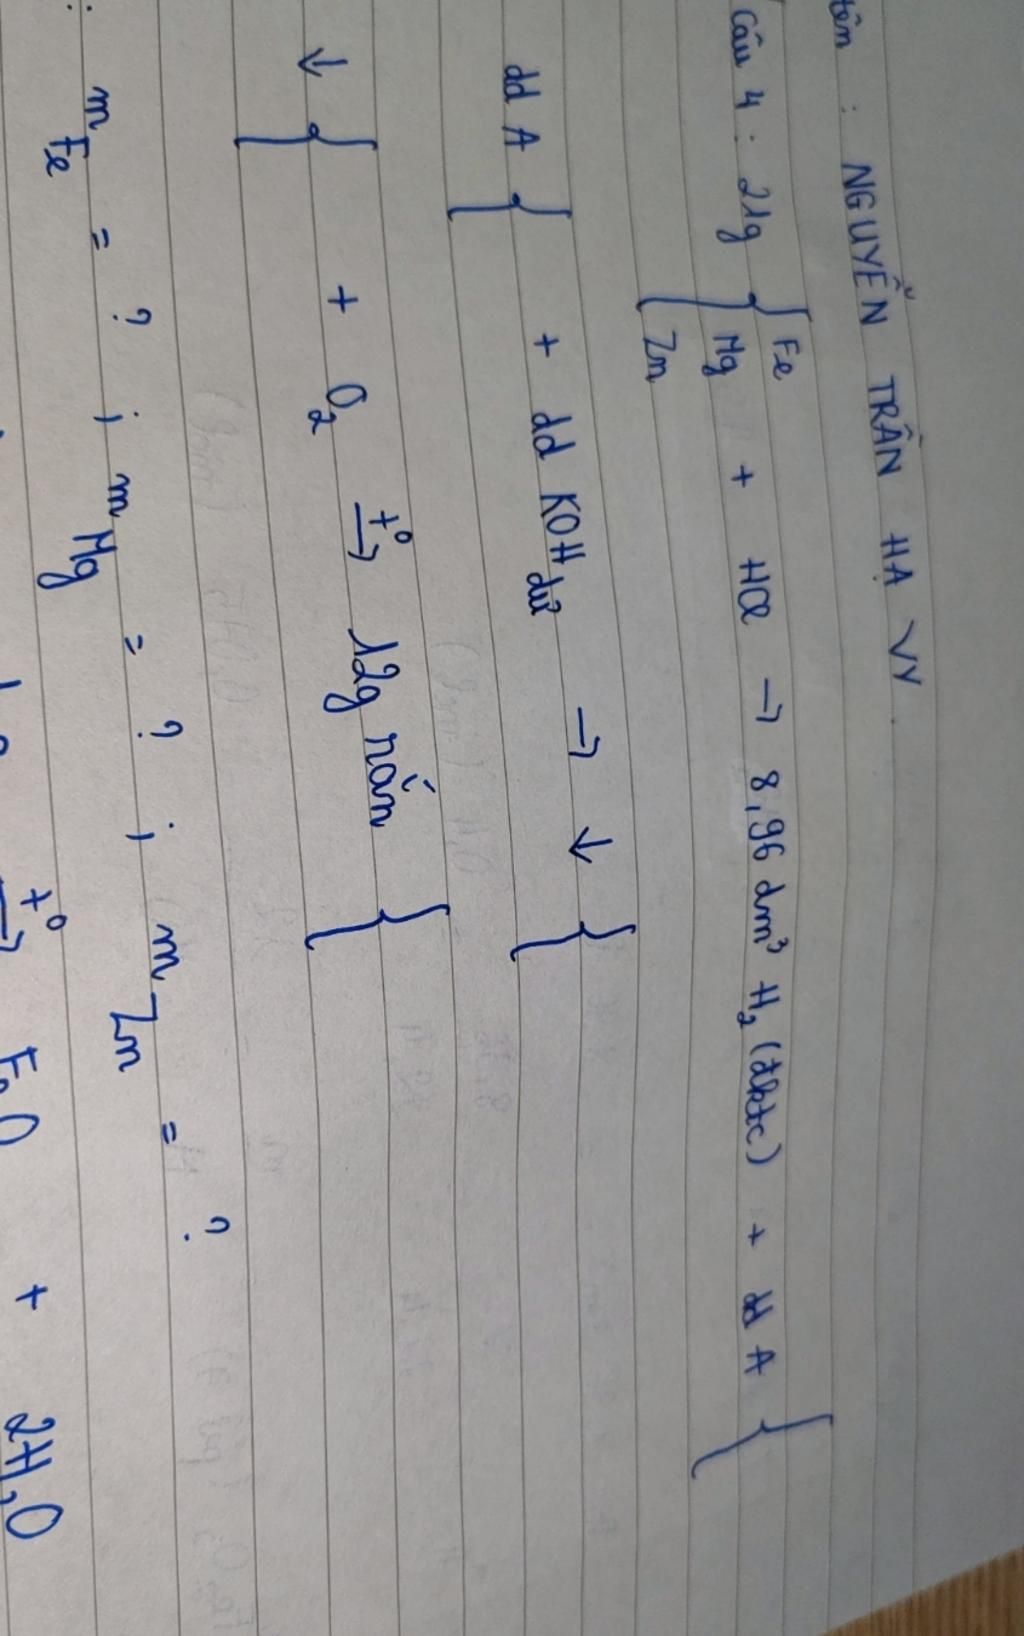 tên : NGUYỄN TRẦN HẠ VY
Câu 4 : 21g { Fe
Mg + HCl → 8,96 dm³ H₂ (đktc) + dd A {
Zn
dd A { + dd KOH dư → ↓ {
↓ { + O₂ t⁰→ 12g rắn {
m Fe = ? ; m Mg = ? ; m Zn = ?
t⁰→ + 2H₂O